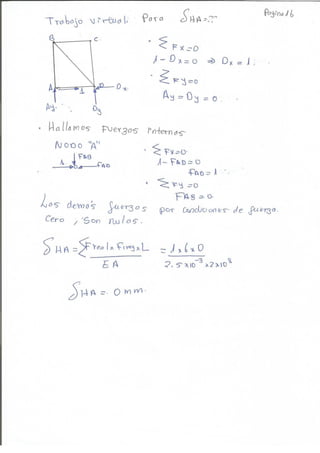 Pagina 16
Trabajo virtual Para δHA=??
B C
ΣFx=0
1-Dx=0 ⇒ Dx=1
ΣFy=0
Ay=Dy=0
A 1 D Dx
Ay Dy
• Hallamos fuerzos internos
NODO "A"
ΣFx=0
FAB
1-FAD=0
1 FAD
FAD=1
ΣFy=0
FAB=0
Los demás fuerzos por condiciones de fuerza
Cero, son nulos.
δHA=Σ Freal x Fimg x L / EA = 1x6x0 / 2.5x10⁻³x2x10⁸
δHA= 0mm.